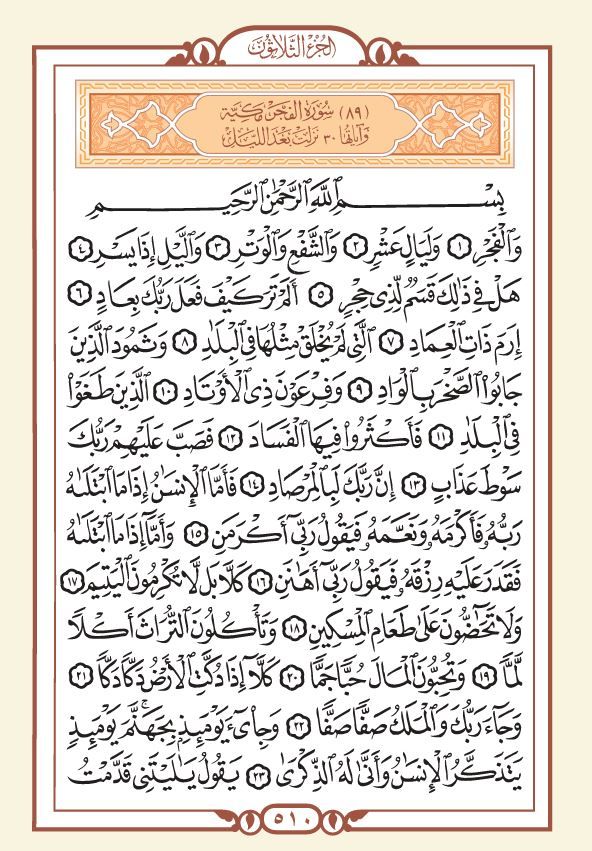 الجزء الثلاثون
(٨٩) سورة الفجر مكية
وآياتها ٣٠ نزلت بعد الليل
بِسْمِ ٱللَّهِ ٱلرَّحْمَٰنِ ٱلرَّحِيمِ
وَٱلْفَجْرِ ۝١ وَلَيَالٍ عَشْرٍ ۝٢ وَٱلشَّفْعِ وَٱلْوَتْرِ ۝٣ وَٱلَّيْلِ إِذَا يَسْرِ ۝٤
هَلْ فِى ذَٰلِكَ قَسَمٌ لِّذِى حِجْرٍ ۝٥ أَلَمْ تَرَ كَيْفَ فَعَلَ رَبُّكَ بِعَادٍ ۝٦
إِرَمَ ذَاتِ ٱلْعِمَادِ ۝٧ ٱلَّتِى لَمْ يُخْلَقْ مِثْلُهَا فِى ٱلْبِلَٰدِ ۝٨ وَثَمُودَ ٱلَّذِينَ
جَابُوا۟ ٱلصَّخْرَ بِٱلْوَادِ ۝٩ وَفِرْعَوْنَ ذِى ٱلْأَوْتَادِ ۝١٠ ٱلَّذِينَ طَغَوْا۟
فِى ٱلْبِلَٰدِ ۝١١ فَأَكْثَرُوا۟ فِيهَا ٱلْفَسَادَ ۝١٢ فَصَبَّ عَلَيْهِمْ رَبُّكَ
سَوْطَ عَذَابٍ ۝١٣ إِنَّ رَبَّكَ لَبِٱلْمِرْصَادِ ۝١٤ فَأَمَّا ٱلْإِنسَٰنُ إِذَا مَا ٱبْتَلَىٰهُ
رَبُّهُۥ فَأَكْرَمَهُۥ وَنَعَّمَهُۥ فَيَقُولُ رَبِّىٓ أَكْرَمَنِ ۝١٥ وَأَمَّآ إِذَا مَا ٱبْتَلَىٰهُ
فَقَدَرَ عَلَيْهِ رِزْقَهُۥ فَيَقُولُ رَبِّىٓ أَهَٰنَنِ ۝١٦ كَلَّا بَل لَّا تُكْرِمُونَ ٱلْيَتِيمَ ۝١٧
وَلَا تَحَٰٓضُّونَ عَلَىٰ طَعَامِ ٱلْمِسْكِينِ ۝١٨ وَتَأْكُلُونَ ٱلتُّرَاثَ أَكْلًا
لَّمًّا ۝١٩ وَتُحِبُّونَ ٱلْمَالَ حُبًّا جَمًّا ۝٢٠ كَلَّآ إِذَا دُكَّتِ ٱلْأَرْضُ دَكًّا دَكًّا ۝٢١
وَجَآءَ رَبُّكَ وَٱلْمَلَكُ صَفًّا صَفًّا ۝٢٢ وَجِا۟ىٓءَ يَوْمَئِذٍۭ بِجَهَنَّمَ ۚ يَوْمَئِذٍ
يَتَذَكَّرُ ٱلْإِنسَٰنُ وَأَنَّىٰ لَهُ ٱلذِّكْرَىٰ ۝٢٣ يَقُولُ يَٰلَيْتَنِى قَدَّمْتُ
٥١٠